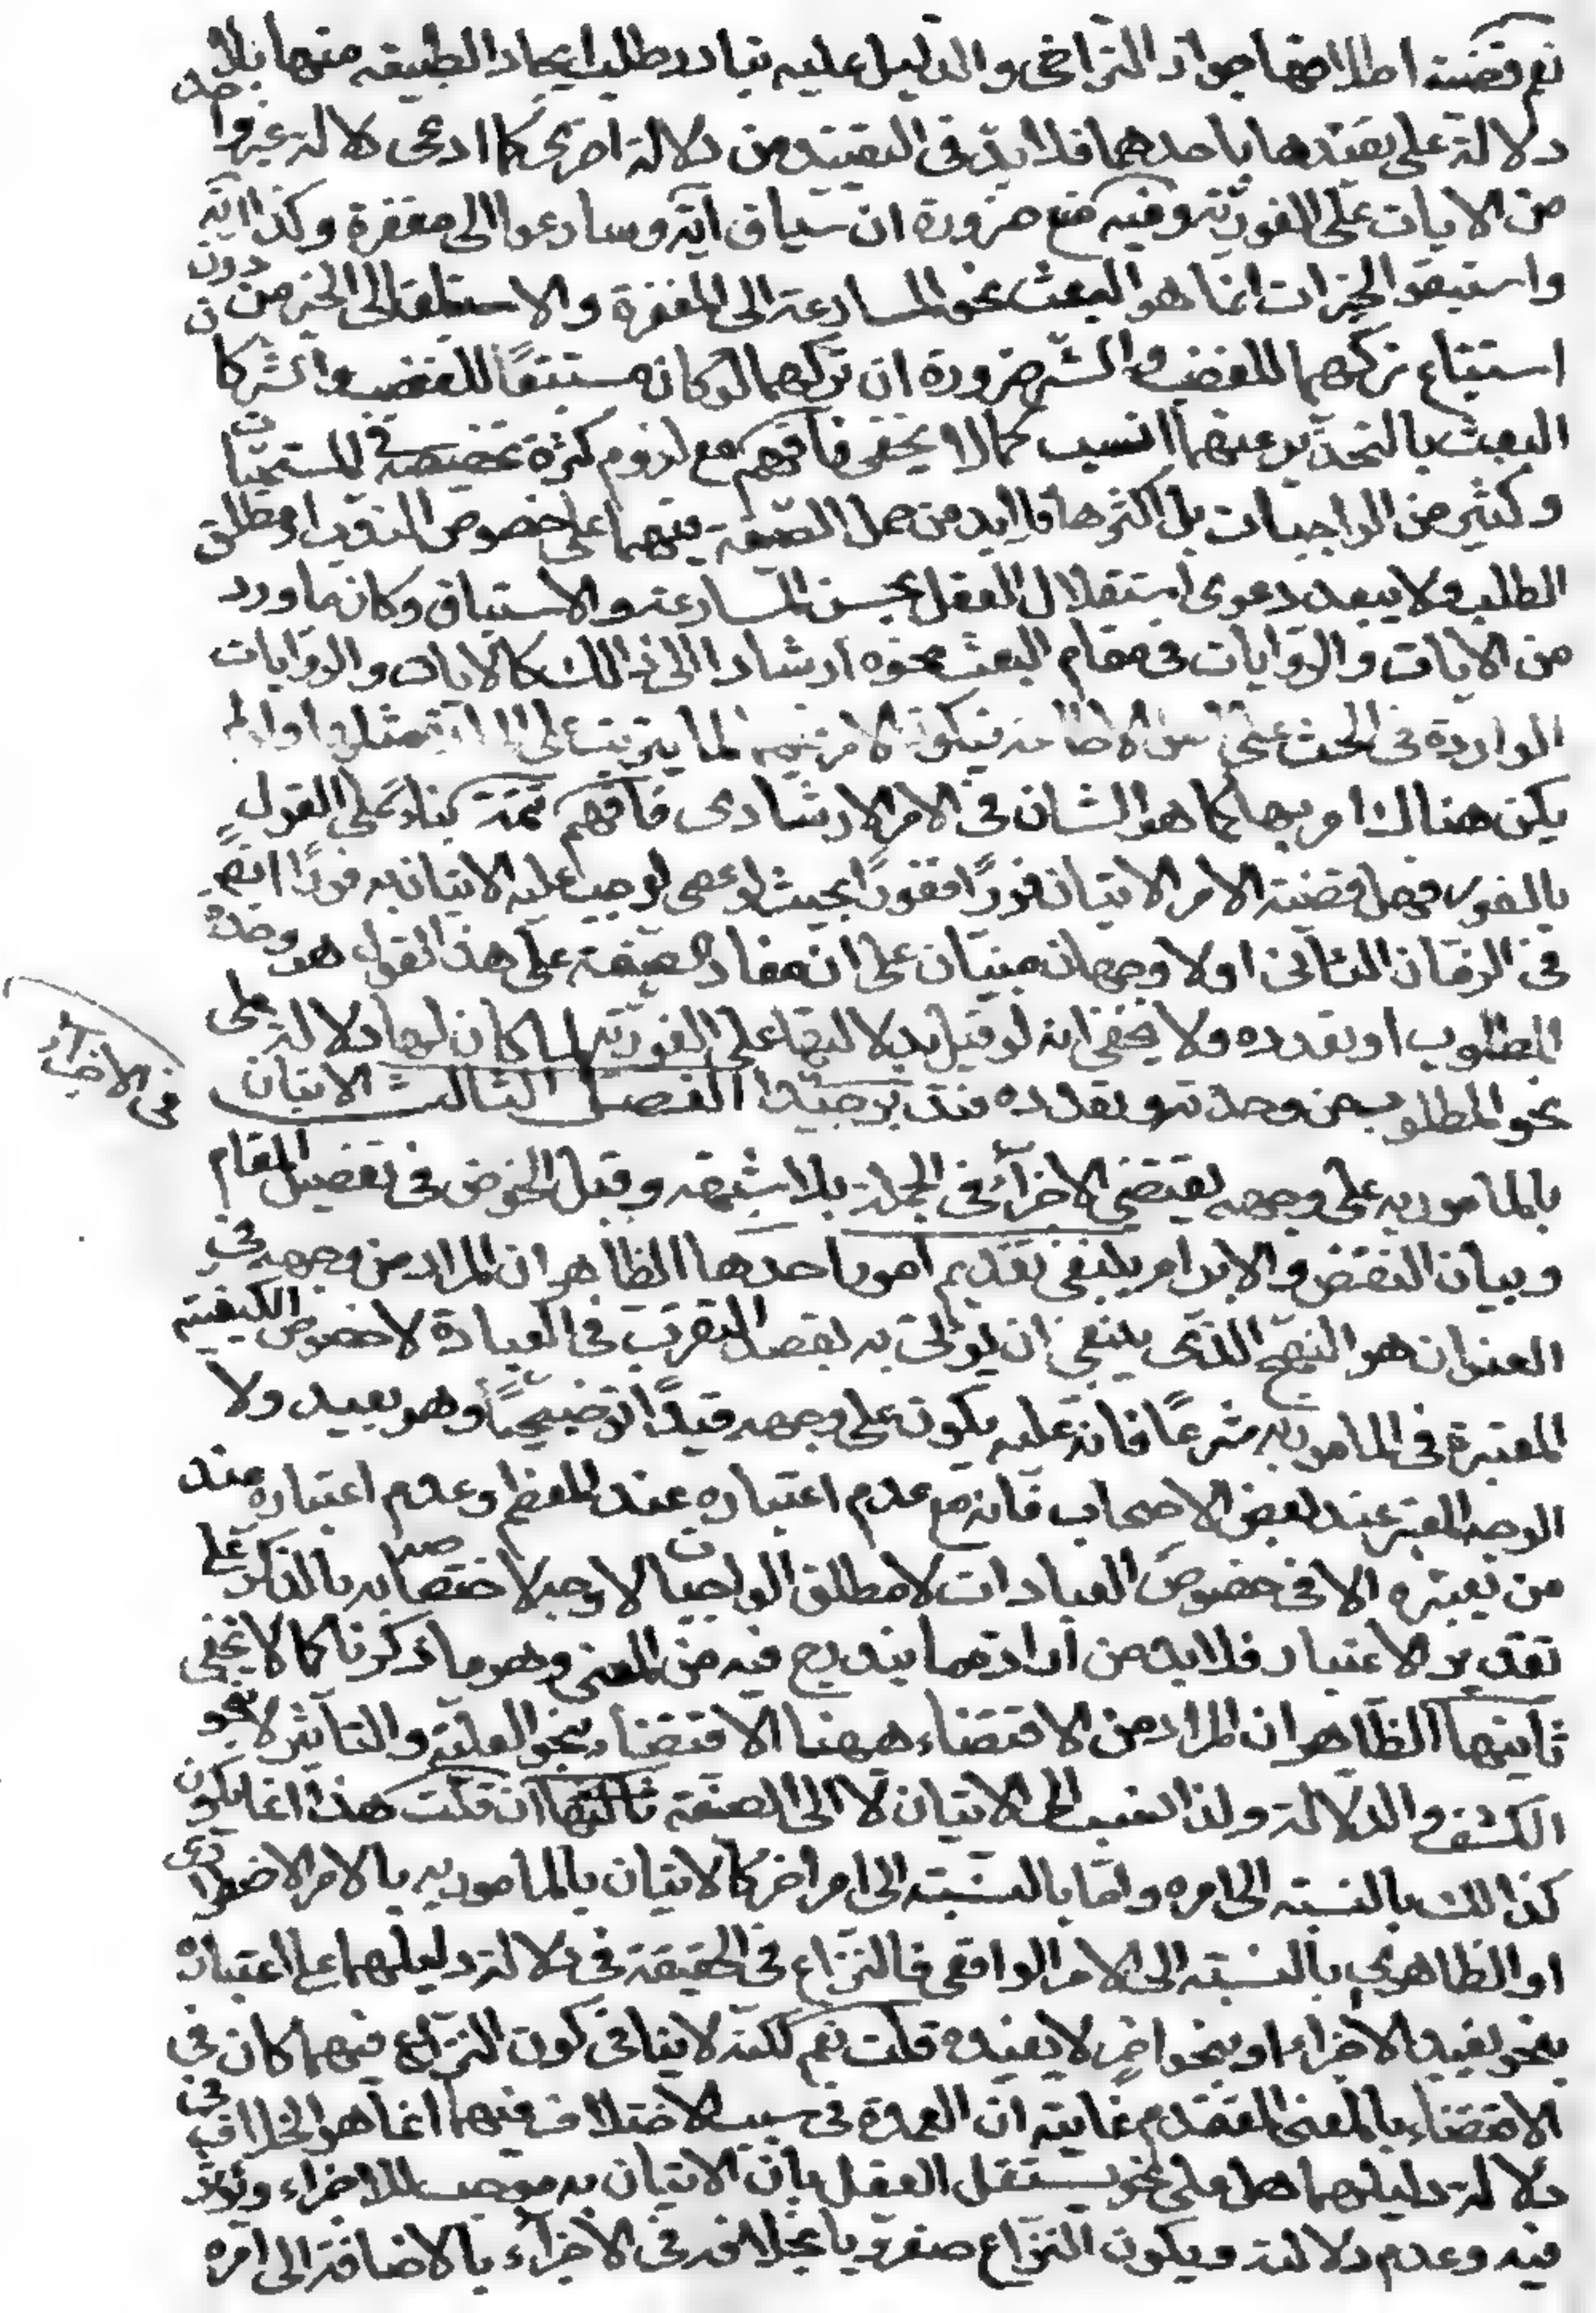 نعم قضية اطلاقها جواز التراخى والدليل عليه تبادر طلب ايجاد الطبيعة منها بلا
دلالة على تقيدها باحدهما فلا بد فى التقييد من دلالة اخرى كما ادعى دلالة غير واحد
من الايات على الفورية وفيه منع ضرورة ان سياق آية وسارعوا الى مغفرة وكذا آية
واستبقوا الخيرات انما هو البعث نحو المسارعة الى المغفرة والاستباق الى الخير من دون
استتباع تركهما للغضب والشر ضرورة ان تركهما لو كان مستتبعًا للغضب والشر كان
البعث بالتحذير عنهما انسب كما لا يخفى فافهم مع لزوم كثرة تخصيصه فى المستحبات
وكثير من الواجبات بل اكثرها فلا بد من حمل الصيغة فيهما على خصوص الندب او مطلق
الطلب ولا يبعد دعوى استقلال العقل بحسن المسارعة والاستباق وكان ما ورد
من الايات والروايات فى مقام البعث نحوه ارشادا الى ذلك كالايات والروايات
الواردة فى الحث على اصل الاطاعة فيكون الامر فيها لما يترتب على المادة بنفسها ولو لم
يكن هناك امر بها كما هو الشان فى الامر الارشادى فافهم تتمة بناء على القول
بالفور فهل قضية الامر الاتيان فورًا ففورًا بحيث لو عصى لوجب عليه الاتيان به فورًا ايضًا
فى الزمان الثانى او لا وجهان مبنيان على ان مفاد الصيغة على هذا القول هو وحدة
المطلوب او تعدده ولا يخفى انه لو قيل بدلالتها على الفورية لما كان لها دلالة على
نحو المطلوب من وحدته وتعدده فتدبر جيدا الفصل الثالث الاتيان
فى الاجزاء
بالمامور به على وجهه يقتضى الاجزاء فى الجملة بلا شبهة وقبل الخوض فى تفصيل المقام
وبيان النقض والابرام ينبغى تقديم امور احدها الظاهر ان المراد من وجهه فى
العنوان هو النهج الذى ينبغى ان يؤتى به بقصد التقرب فى العبادة لا خصوص الكيفية
المعتبرة فى المامور به شرعًا فانه عليه يكون على وجهه قيدًا توضيحيًا وهو بعيد ولا
الوجه المعتبر عند بعض الاصحاب فانه مع عدم اعتباره عند المعظم وعدم اعتباره عند
من يعتبره الا فى خصوص العبادات لا مطلق الواجبات لا وجه لاختصاصه به بالذكر على
تقدير الاعتبار فلا بد من ارادة ما يندرج فيه من المعنى وهو ما ذكرنا كما لا يخفى
ثانيها الظاهر ان المراد من الاقتضاء ههنا الاقتضاء بنحو العلية والتاثير لا بنحو
الكشف والدلالة ولذا نسب الى الاتيان لا الى الصيغة ثالثها ان قلت هذا انما يكون
كذلك بالنسبة الى امره واما بالنسبة الى امر اخر كالاتيان بالمامور به بالامر الاضطرارى
او الظاهرى بالنسبة الى الامر الواقعى فالنزاع فى الحقيقة فى دلالة دليلهما على اعتباره
بنحو يفيد الاجزاء او بنحو اخر لا يفيده قلت نعم لكنه لا ينافى كون النزاع فيهما كان فى
الاقتضاء بالمعنى المتقدم غايته ان العمدة فى سبب الاختلاف فيهما انما هو الخلاف فى
دلالة دليلهما هل على نحو يستقل العقل بان الاتيان به موجب للاجزاء ويؤثر
فيه وعدم دلالته ويكون النزاع صغرويا بخلافه فى الاجزاء بالاضافة الى امره